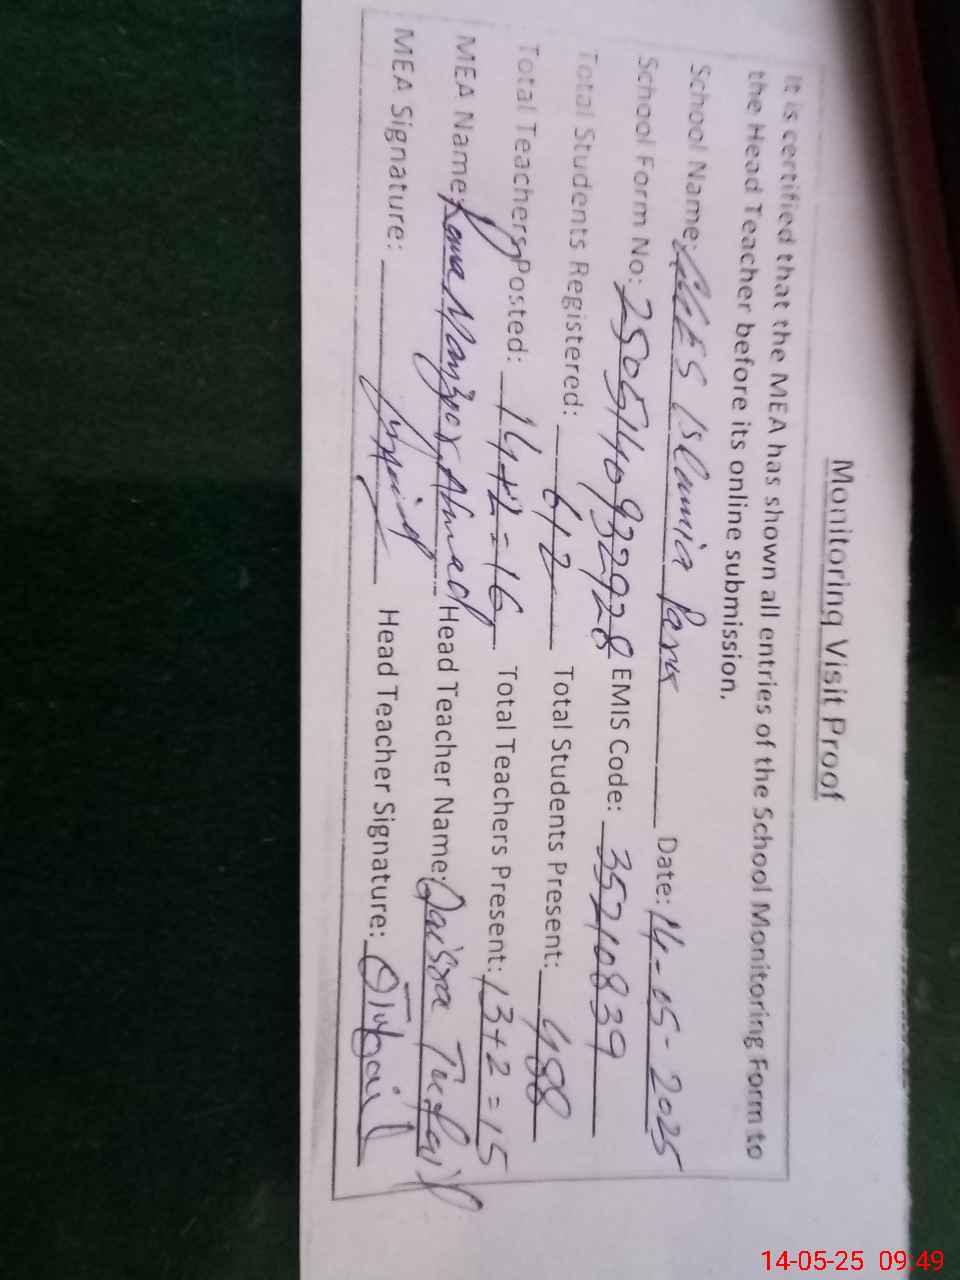 Monitoring Visit Proof
It is certified that the MEA has shown all entries of the School Monitoring Form to
the Head Teacher before its online submission.
School Name: Islamia Park Date: 14-05-2025
School Form No: 2505140932928 EMIS Code: 35210839
Total Students Registered: 612 Total Students Present: 488
Total Teachers Posted: 14+2=16 Total Teachers Present: 13+2=15
MEA Name: Ahmed Head Teacher Name: Qaisra Tufail
MEA Signature: Head Teacher Signature:
14-05-25 09:49